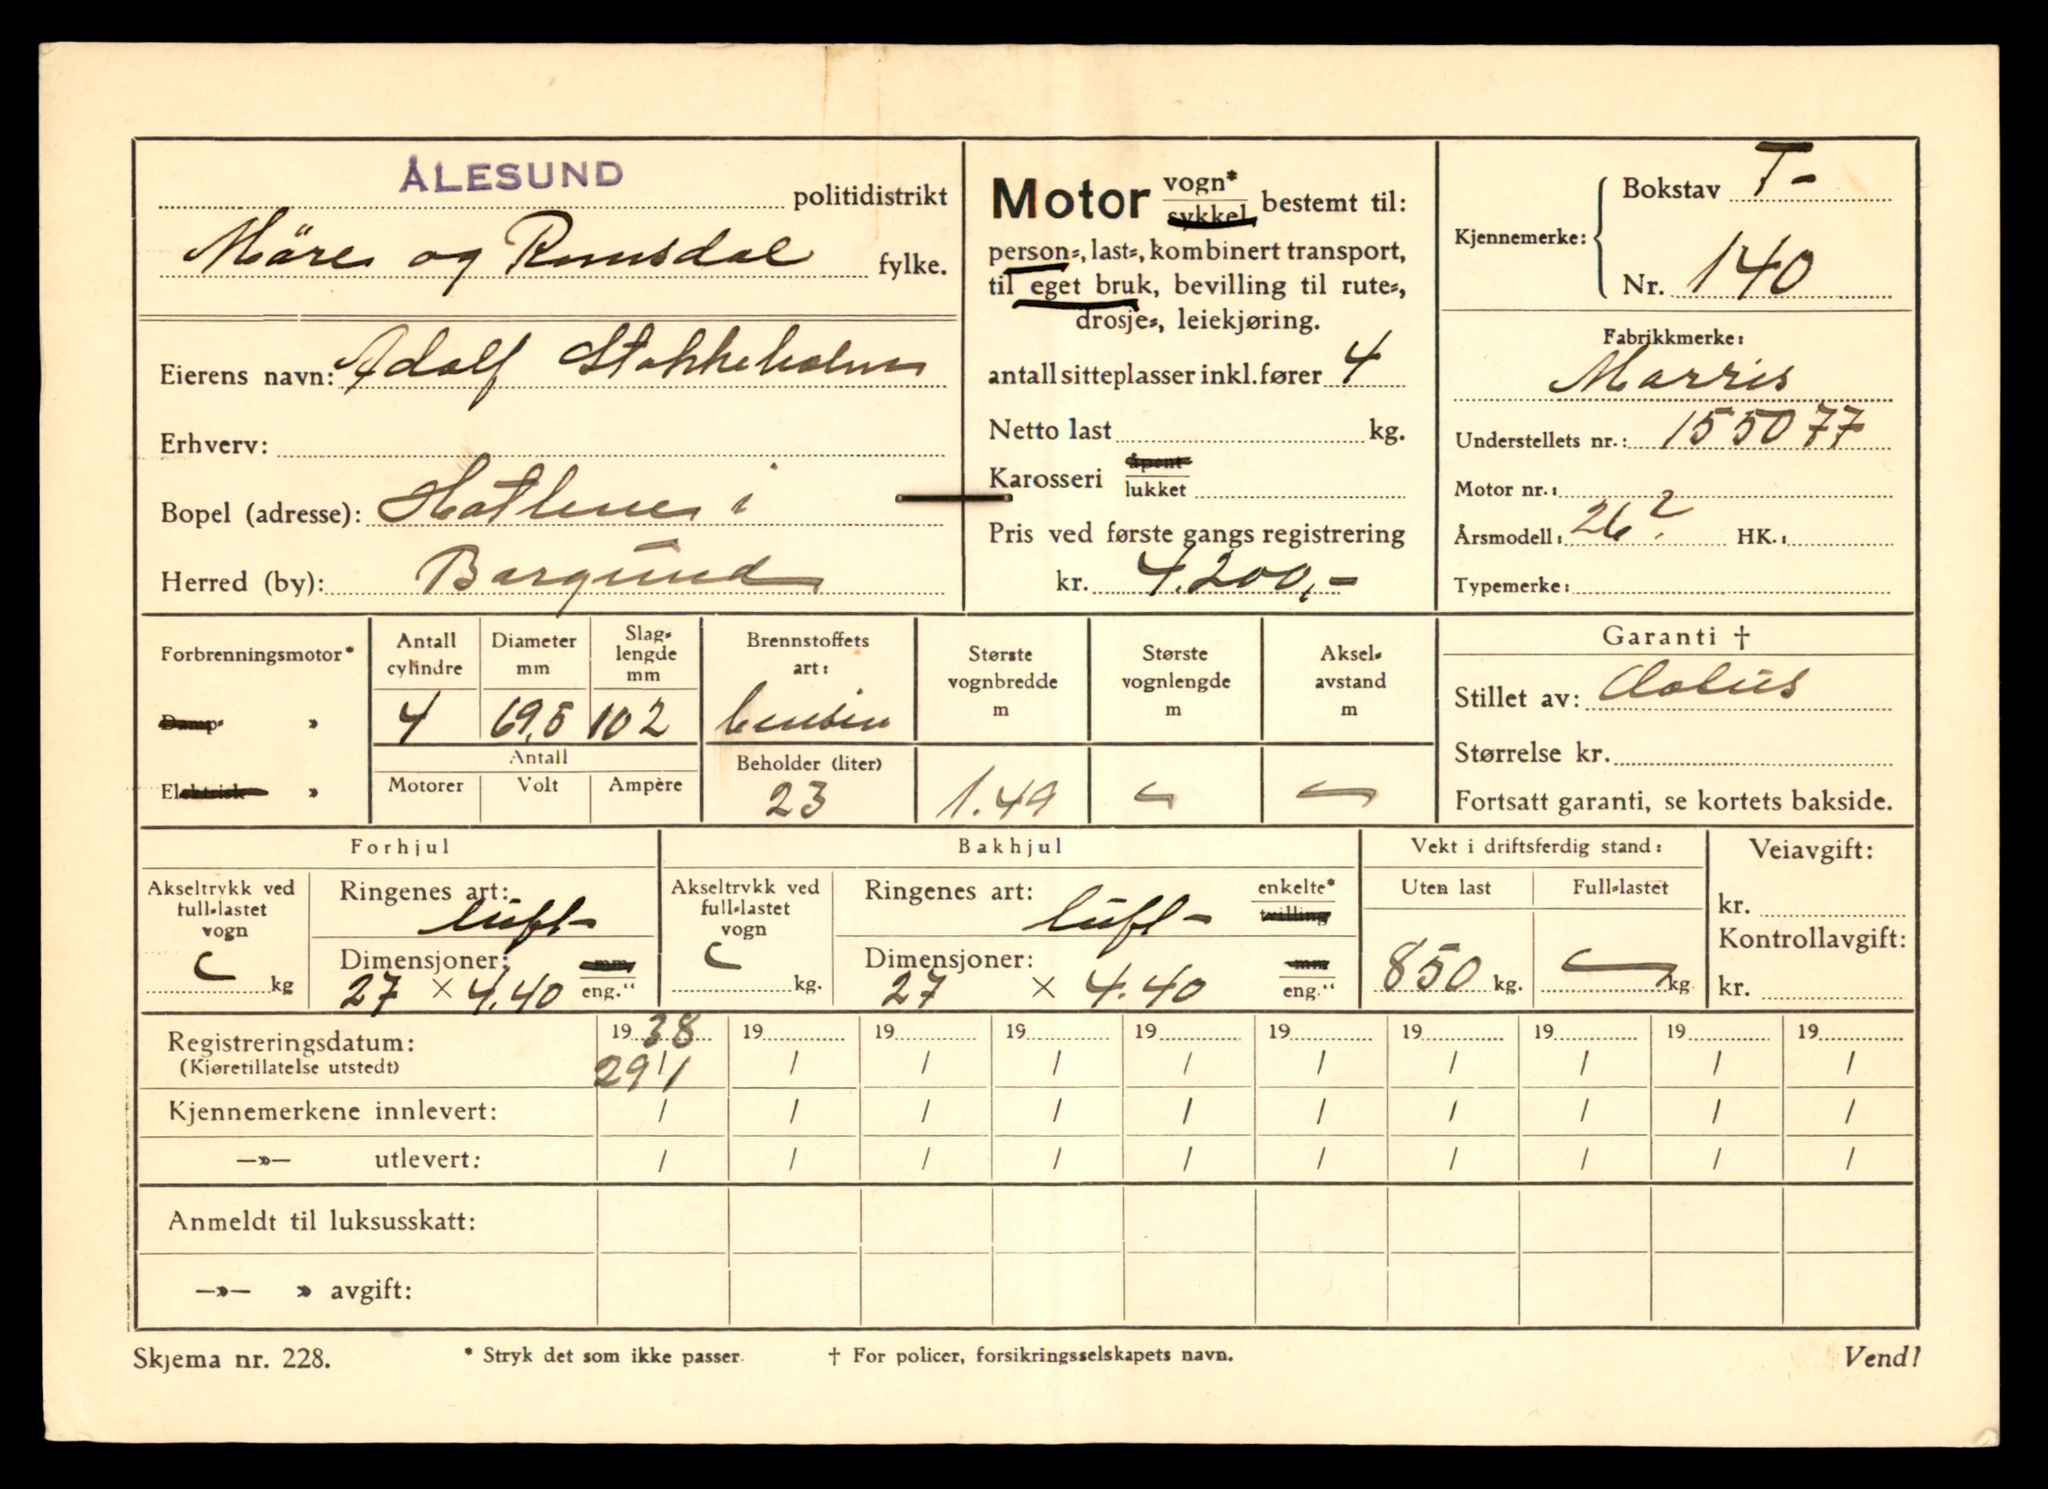 ÅLESUND politidistrikt
Möre og Romsdal fylke.
Eierens navn: Adolf Stokkeholm
Erhverv:
Bopel (adresse): Hatlene i
Herred (by): Borgund
Motor vogn* sykkel bestemt til:
person-, last-, kombinert transport,
til eget bruk, bevilling til rute-,
drosje-, leiekjøring.
antall sitteplasser inkl. fører 4
Netto last kg.
Karosseri åpent lukket
Pris ved første gangs registrering
kr. 4.200,-
Kjennemerke: Bokstav T-
Nr. 140
Fabrikkmerke:
Morris
Understellets nr.: 155077
Motor nr.:
Årsmodell: 26? HK.:
Typemerke:
Forbrenningsmotor*
Damp- »
Elektrisk »
Antall cylindre Diameter mm Slaglengde mm
4 69,5 102
Antall
Motorer Volt Ampère
Brennstoffets art:
bensin
Beholder (liter)
23
Største vognbredde m
1.49
Største vognlengde m
Akselavstand m
Garanti †
Stillet av: Aolus
Størrelse kr.
Fortsatt garanti, se kortets bakside.
Forhjul
Akseltrykk ved full-lastet vogn
kg
Ringenes art:
luft-
Dimensjoner: mm
27 × 4.40 eng."
Bakhjul
Akseltrykk ved full-lastet vogn
kg.
Ringenes art: enkelte* tvilling
luft-
Dimensjoner: mm
27 × 4.40 eng."
Vekt i driftsferdig stand:
Uten last Full-lastet
850 kg. kg
Veiavgift:
kr.
Kontrollavgift:
kr.
Registreringsdatum: 1938 19 19 19 19 19 19 19 19 19
(Kjøretillatelse utstedt) 29/1 / / / / / / / / /
Kjennemerkene innlevert: / / / / / / / / / /
—»— utlevert: / / / / / / / / / /
Anmeldt til luksusskatt:
—»— » avgift:
Skjema nr. 228. * Stryk det som ikke passer. † For policer, forsikringsselskapets navn. Vend!